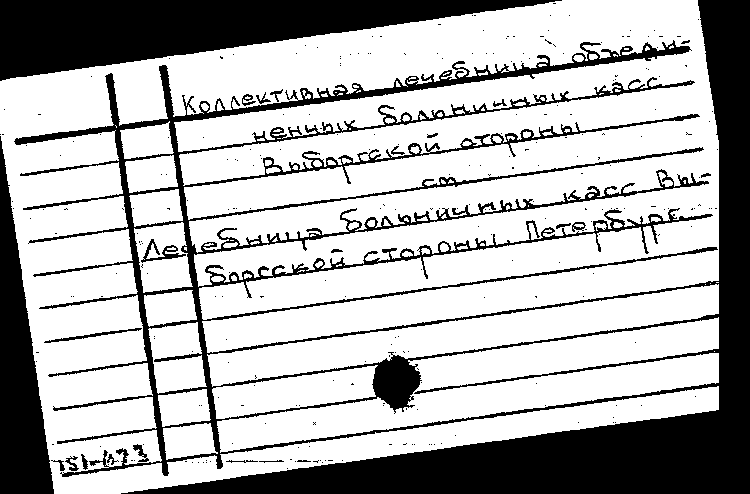 Коллективная лечебница объеди-
ненных больничных касс
Выборгской стороны
см.
Лечебница больничных касс Вы-
боргской стороны. Петербург.